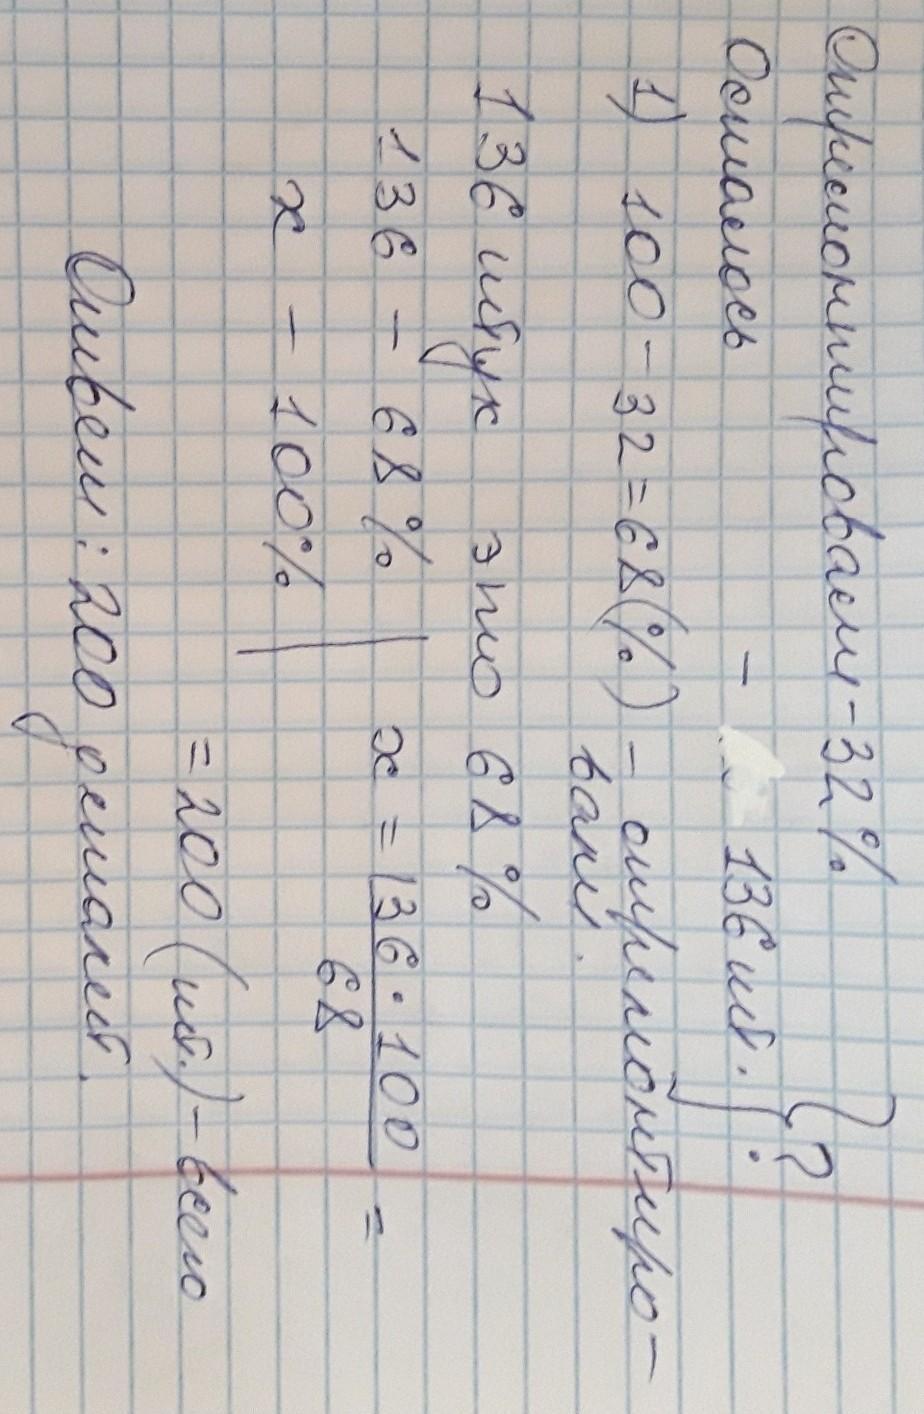 Отремонтировали - 32% } ?
Осталось - 136 шт.
1) 100 - 32 = 68 (%) - отремонтиро-
вали.
136 штук это 68%
136 - 68% | x = 136 · 100 / 68 =
x - 100%
= 200 (шт.) - всего
Ответ: 200 деталей.